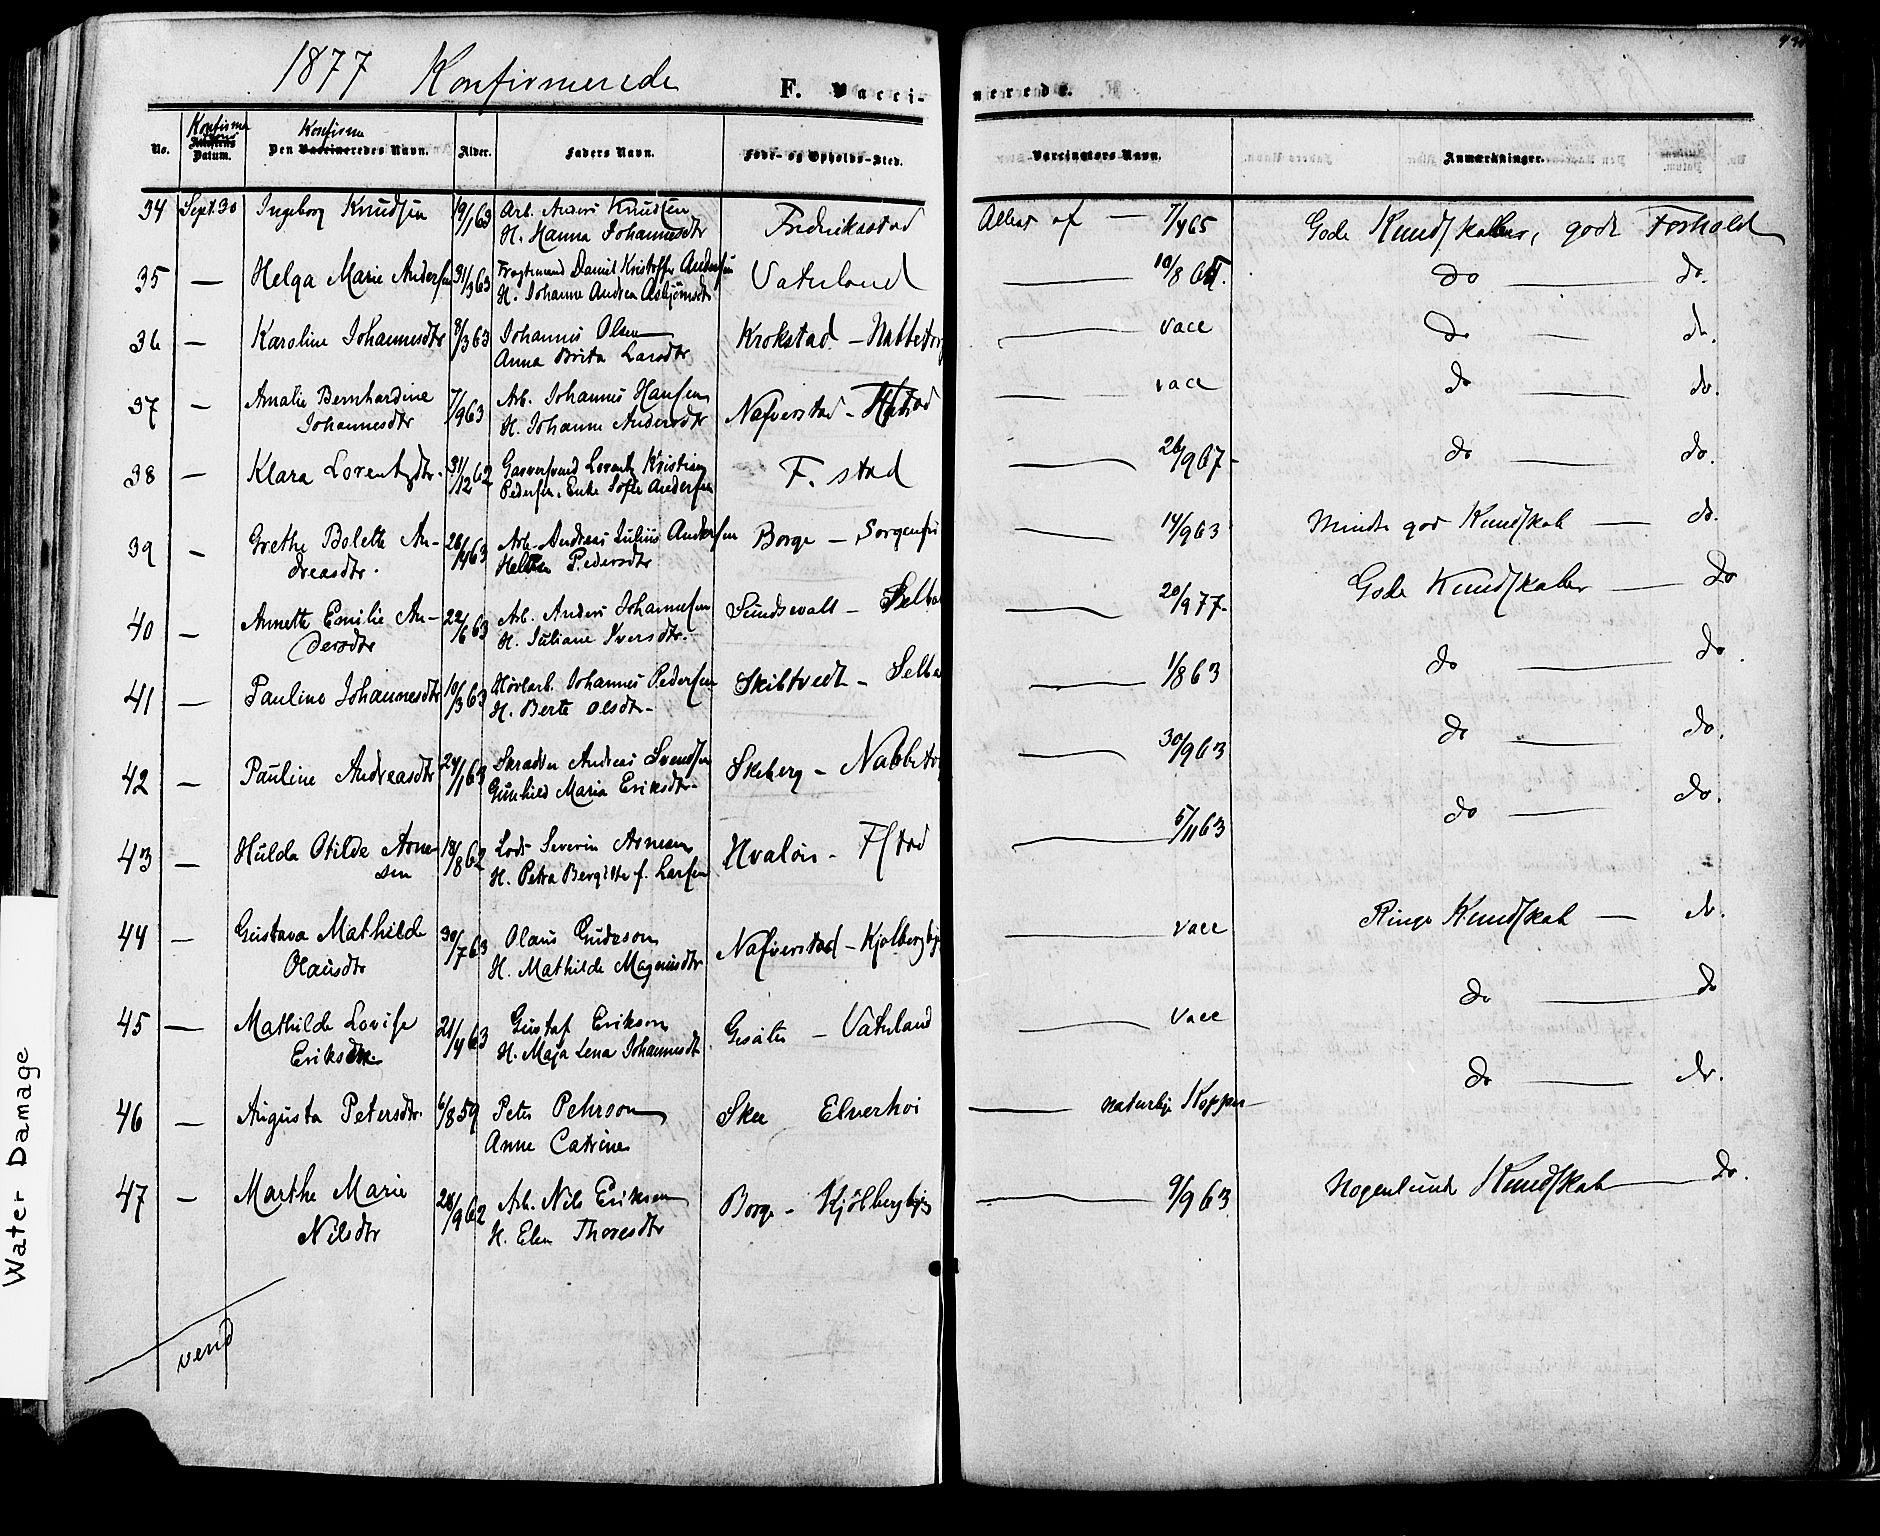 1877 Konfirmerede F. Vacci- nerede.
No. Konfirma tions Datum. Den Konfirma Vaccineredes Navn. Alder. Faders Navn. Føde- og Opholds-Sted. Vaccinators Navn. Anmærkninger.
34 Sept. 30 Ingeborg Knudsen 19/1 63 Arb. Anders Knudsen Fredriksstad Attest af — 7/4 65 Gode Kundskaber, gode Forhold
H. Hanna Johannesdtr
35 — Helga Marie Andersen 31/3 63 Fragtmand Daniel Kristoffer Andersen Vaterland — 10/8 do — do.
H. Johanne Andrea Asbjørnsdtr
36 — Karoline Johannesdtr 8/3 63 Johannes Olsen Krokstad — Nabbetorp — vacc do — do.
Anna Brita Larsdtr
37 — Amalie Bernhardine 7/9 63 Arb. Johannes Hansen Nafverstad - — vacc do — do.
Johannesdtr H. Johanne Andersdtr
38 — Klara Lorentzdtr. 31/12 62 Gasverksmd Lorentz Kristian F. stad — 26/9 67 - do — do.
Pedersen, Enke Sofie Andersen
39 — Grethe Bolette An- 26/4 63 Arb. Andreas Julius Andersen Borge — Sorgenfri — 14/9 63 Mindre god Kundskab — do.
dreasdtr. Pedersdtr
40 — Annette Emilie An- 22/6 63 Arb. Anders Johannesen Sundsvall — Selbak — 20/9 77- Gode Kundskaber — do
dersdtr H. Juliane Iversdtr.
41 — Pauline Johannesdtr 10/3 63 Høvlarb. Johannes Pedersen Skibtvedt — Selbak — 1/8 63 do — do.
H. Berte Olsdtr -
42 — Pauline Andreasdtr 24/1 63 Skrædder Andreas Svendsen Skeberg — Nabbetorp — 30/9 63 do — do.
Gunhild Maria Eriksdtr -
43 — Hulda Otilde Arne- 18/8 62 Lods Severin Arnesen Hvaløen - Fstad — 5/11 63 do — do.
sen H. Petra Bergitte f. Larsen
44 — Gustava Mathilde 30/7 63 Olaus Nafverstad — Kjølbergbye — vacc Ringe Kundskab — do.
Olausdtr H. Mathilde Magnusdtr
45 — Mathilde Lovise 21/4 63 Gustaf Erikson — Vaterland — vacc do — do
Eriksdtr H. Maja Lena Johannesdtr
46 — Augusta Petersdtr. 6/8 59 Peter Peterson Skee Elverhøi — naturlige Kopper — do — do.
Anne Catrine
47 — Marthe Marie 28/9 62 Arb. Nils Eriksen Borge - Kjølbergbye — 9/9 63 Nogenlunde Kundskab — do.
Nilsdtr H. Elen Thoresdtr
vend
Water Damage